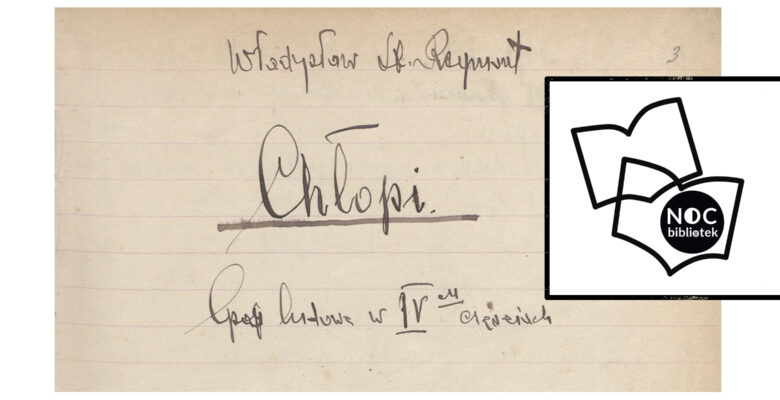 Władysław St. Reymont
3
Chłopi.
ludowa w IV częściach
NOC
bibliotek